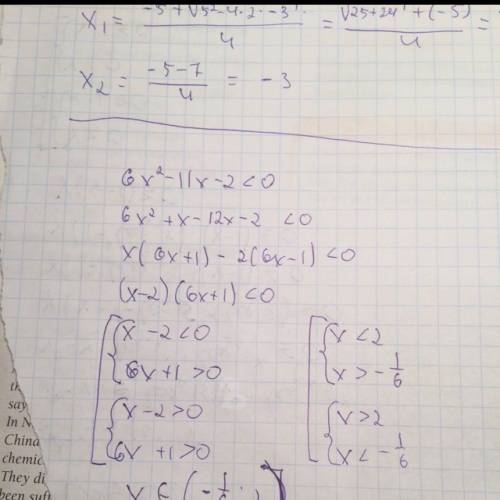 X₁ = (-5 + √(5² - 4 · 2 · -3)) / 4 = (√(25 + 24) + (-5)) / 4 =
X₂ = (-5 - 7) / 4 = -3
6x² - 11x - 2 < 0
6x² + x - 12x - 2 < 0
x(6x + 1) - 2(6x - 1) < 0
(x - 2)(6x + 1) < 0
[ { x - 2 < 0 [ { x < 2
6x + 1 > 0 x > -1/6
{ x - 2 > 0 { x > 2
6x + 1 > 0 x < -1/6
x ∈ (-1/6 ;
say
In N
China
chemic
They di
been suff